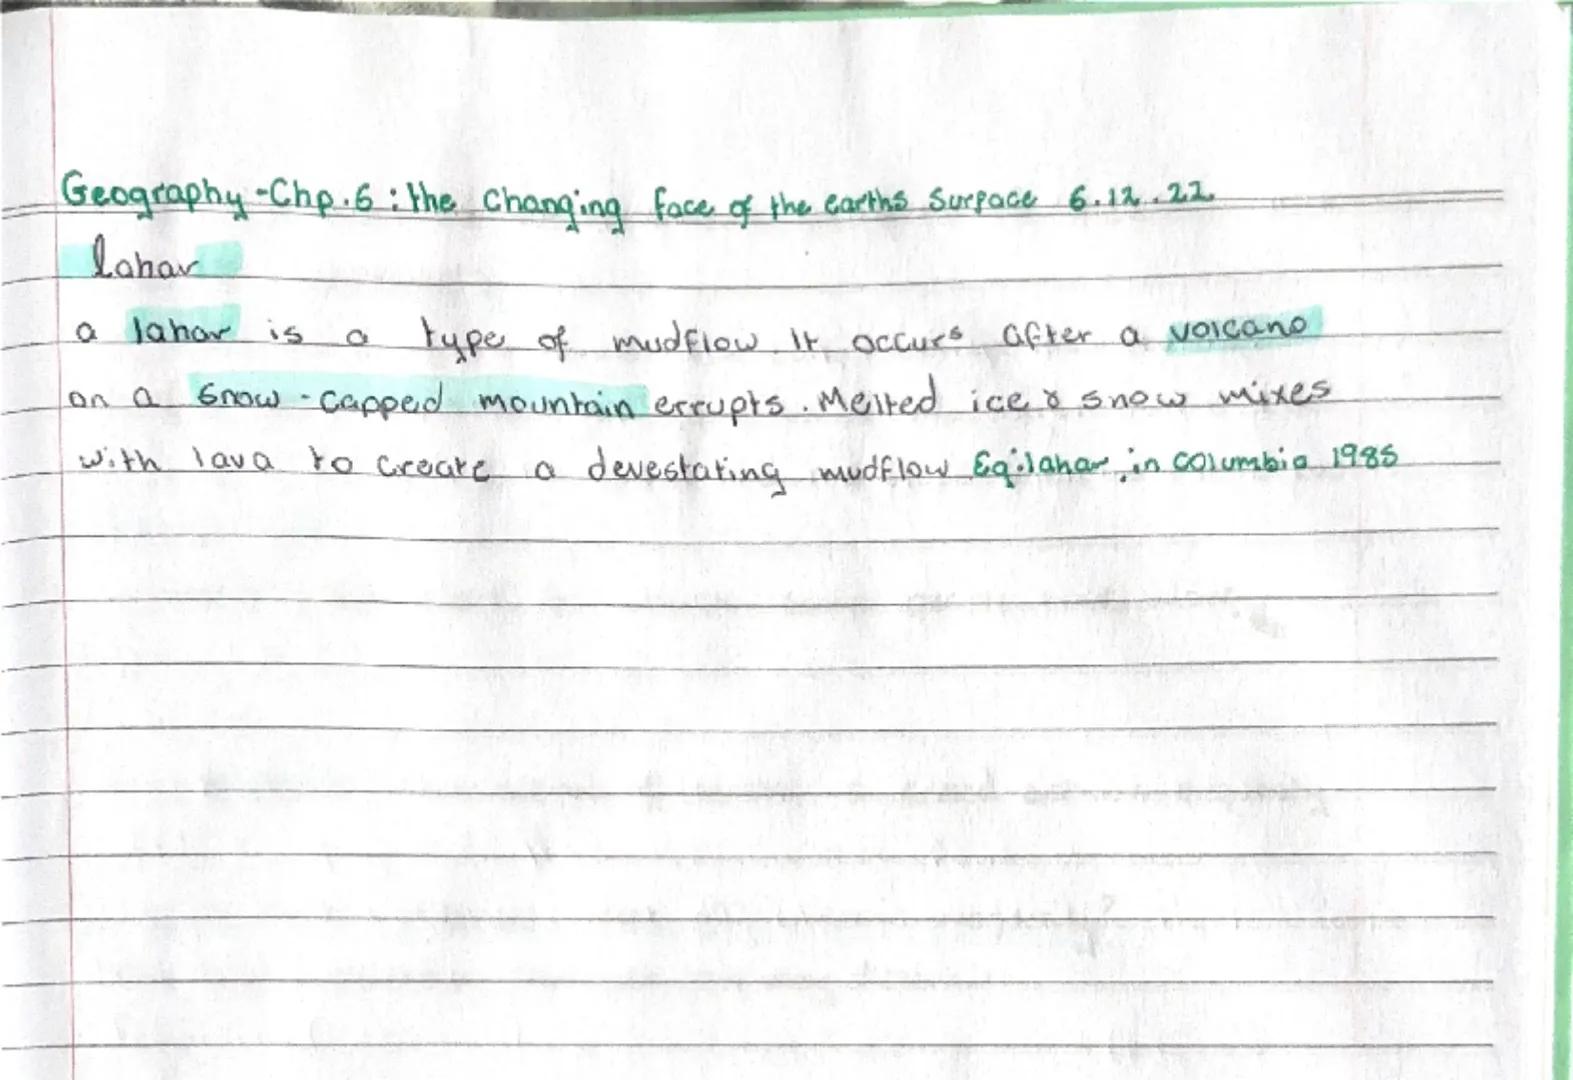 Geography - Chp.6 : the Changing face of the earths Surface 6.12.22
lahar
a lahar is a type of mudflow. It occurs after a volcano
on a snow-capped mountain errupts. Melted ice & snow mixes
with lava to create a devestating mudflow Eg: lahar in columbia 1985